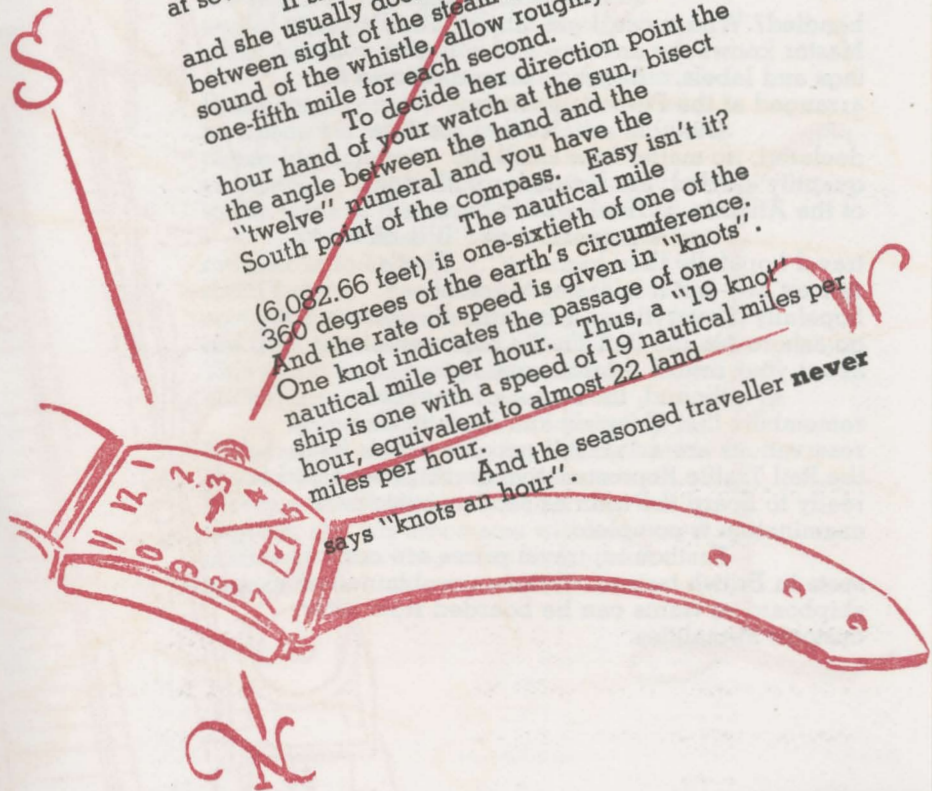 and she usually does
between sight of the steam
sound of the whistle, allow roughly
one-fifth mile for each second.
To decide her direction point the
hour hand of your watch at the sun, bisect
the angle between the hand and the
"twelve" numeral and you have the
South point of the compass. Easy isn't it?
The nautical mile
(6,082.66 feet) is one-sixtieth of one of the
360 degrees of the earth's circumference.
And the rate of speed is given in "knots".
One knot indicates the passage of one
nautical mile per hour. Thus, a "19 knot"
ship is one with a speed of 19 nautical miles per
hour, equivalent to almost 22 land
miles per hour.
And the seasoned traveller never
says "knots an hour".
S
W
N
11 12 1 2 3 4 5
10 9 8 7